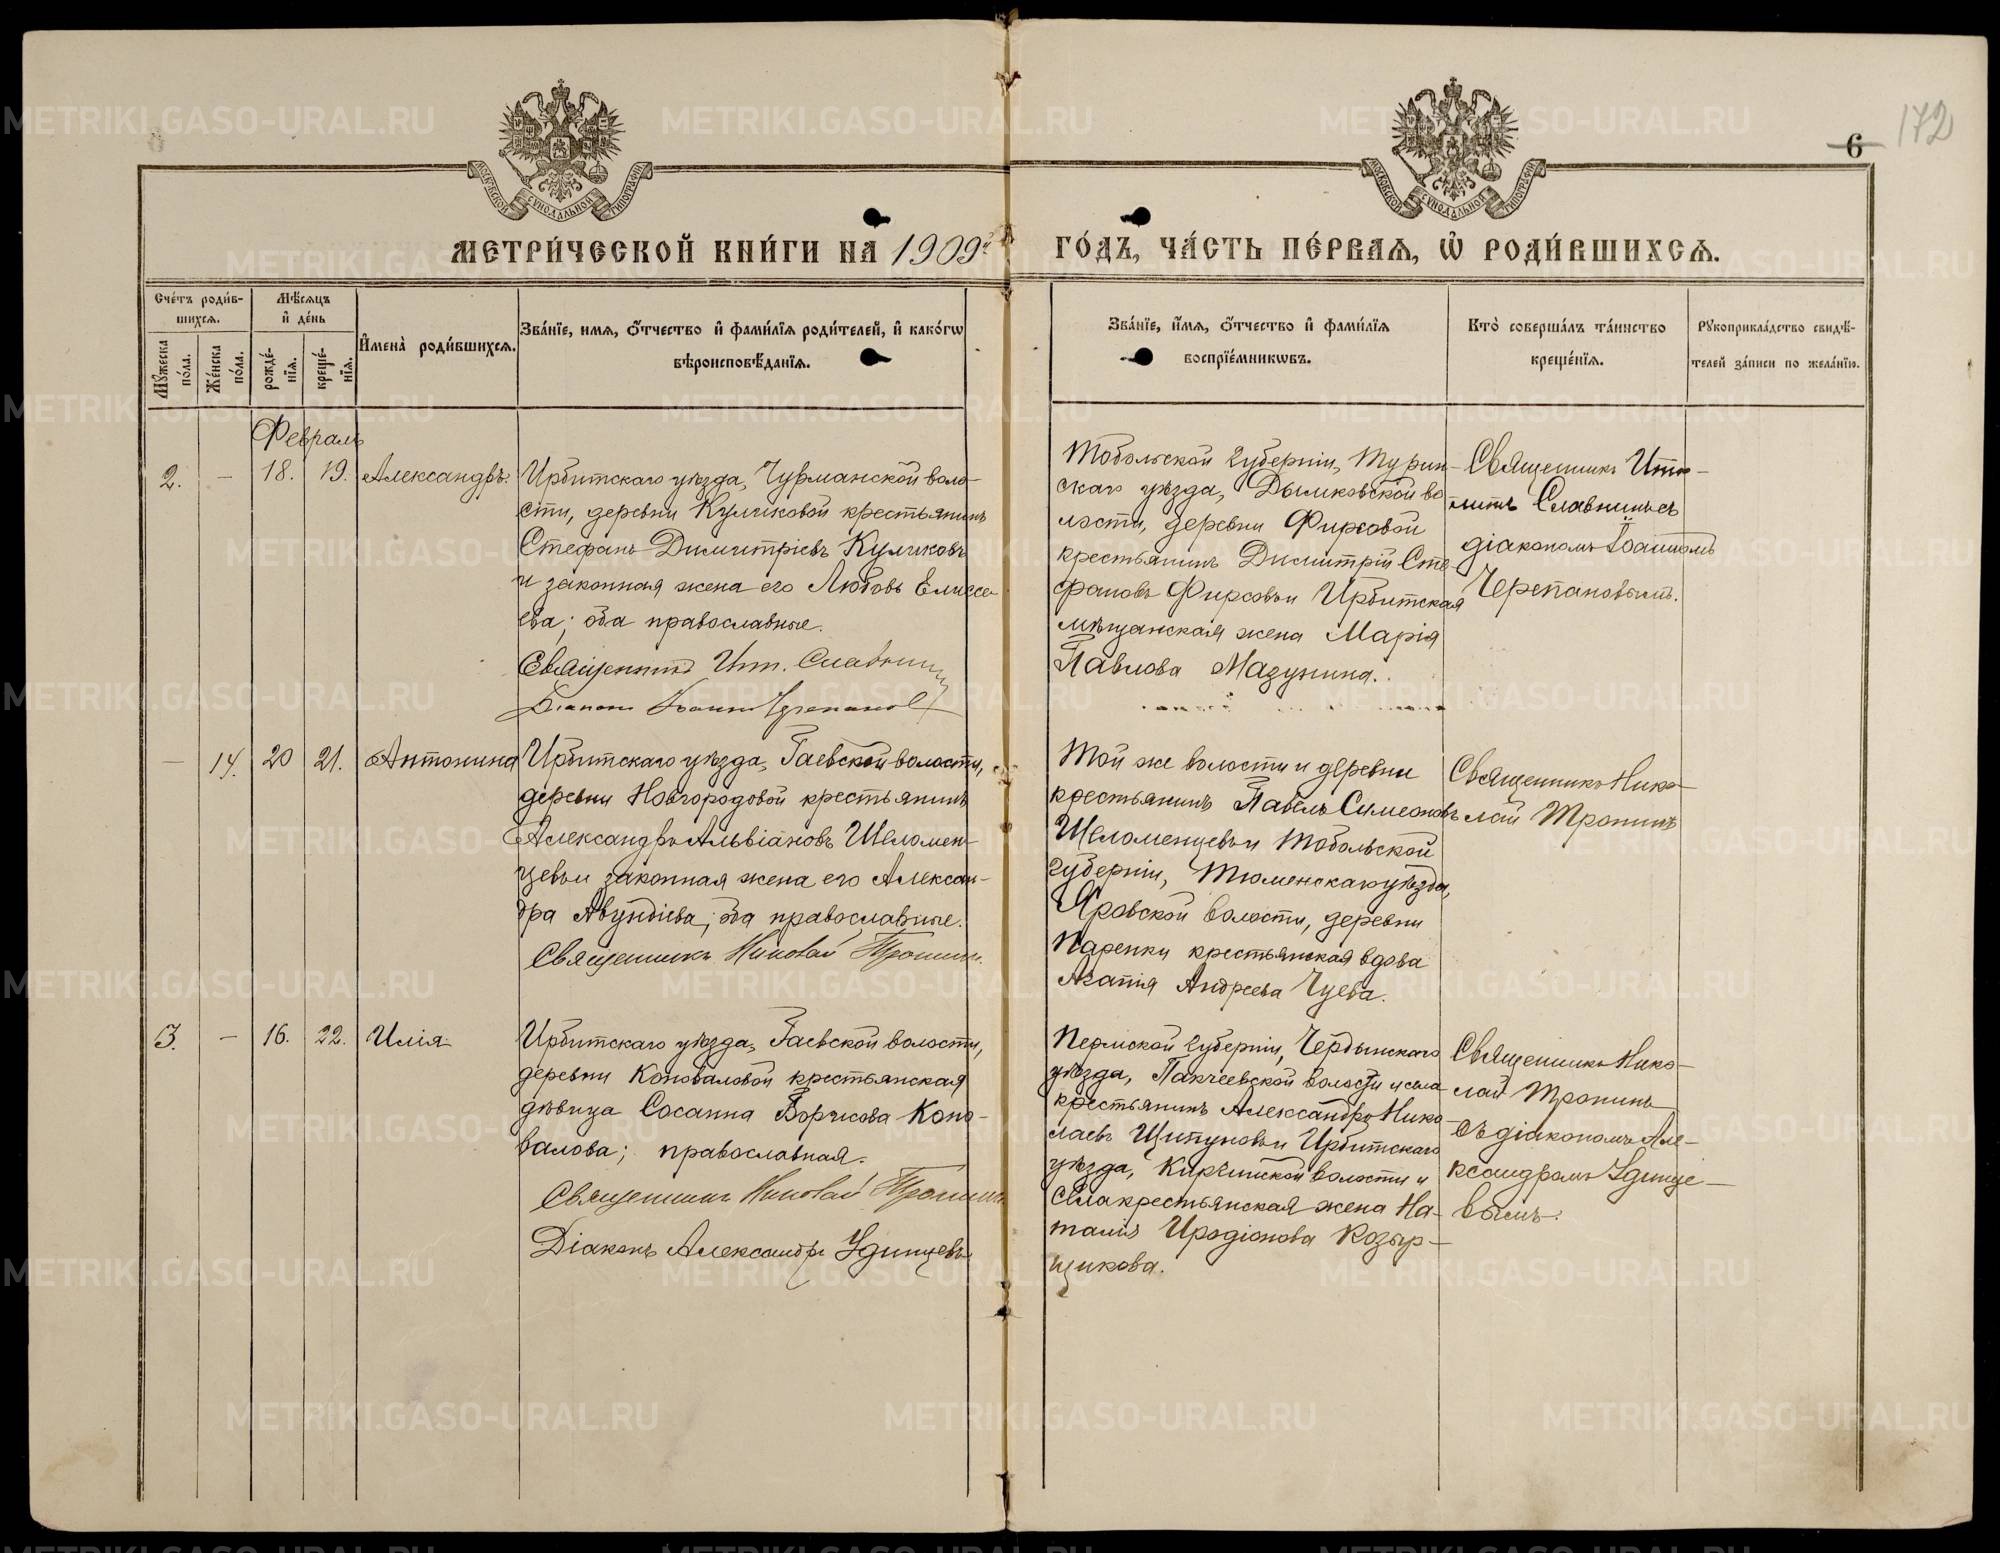 6
172
МОСКОВСКОЙ СѴНОДАЛЬНОЙ ТИПОГРАФІИ
МОСКОВСКОЙ СѴНОДАЛЬНОЙ ТИПОГРАФІИ
МЕТРИ́ЧЕСКОЙ КНИ́ГИ НА 1909й ГО́ДЪ, ЧА́СТЬ ПЕ́РВАѦ, Ѽ РОДИ́ВШИХСѦ.
Сче́тъ роди́в-
шихсѧ.
Мѣ́сѧцъ
и҆ де́нь
Мꙋ́жеска
по́ла.
Же́нска
по́ла.
рожде́-
нїѧ.
креще́-
нїѧ.
И҆мена̀ роди́вшихсѧ.
Зва́нїе, имѧ, ѻ҆́тчество и҆ фами́лїѧ роди́телей, и҆ како́гѡ
вѣроисповѣ́данїѧ.
Зва́нїе, и҆́мѧ, ѻ҆́тчество и҆ фами́лїѧ
воспрїе́мникѡвъ.
Кто̀ соверша́лъ та́инство
креще́нїѧ.
Рꙋкоприкла́дство свидѣ́-
телей за́писи по жела́нїю.
Февраль
2.
—
18.
19.
Александръ.
Ирбитскаго уѣзда, Чурманской воло-
сти, деревни Куликовой крестьянинъ
Стефанъ Димитріевъ Куликовъ
и законная жена его Любовь Елисе-
ева; оба православные.
Священникъ Ип. Славнин
Діаконъ Іоаннъ Черепановъ
Тобольской губерніи, Турин-
скаго уѣзда, Дымковской во
лости, деревни Фирсовой
крестьянинъ Димитрій Сте-
фановъ Фирсовъ и Ирбитская
мѣщанская жена Марія
Павлова Мазунина.
Священникъ Ипо-
литъ Славнинъ съ
діакономъ Іоанномъ
Черепановымъ.
—
14.
20
21.
Антонина
Ирбитскаго уѣзда, Гаевской волости,
деревни Новгородовой крестьянинъ
Александръ Альвіановъ Шеломен-
цевъ и законная жена его Алексан-
дра Авундіева; оба православные.
Священникъ Николай Тронинъ.
Той же волости и деревни
крестьянинъ Павелъ Симеоновъ
Шеломенцевъ и Тобольской
губерніи, Тюменскаго уѣзда,
Яровской волости, деревни
Паренки крестьянская вдова
Агапія Андреева Чуева.
Священникъ Нико-
лай Тронинъ
3.
—
16.
22.
Илія
Ирбитскаго уѣзда, Гаевской волости,
деревни Коноваловой крестьянская
дѣвица Сосанна Борисова Коно-
валова; православная.
Священникъ Николай Тронинъ
Діаконъ Александръ Удинцевъ
Пермской губерніи, Чердынскаго
уѣзда, Пакчеевской волости и села
крестьянинъ Александръ Нико-
лаевъ Щипуновъ и Ирбитскаго
уѣзда, Киргинской волости и
села крестьянская жена На-
талія Иродіонова Козыр-
щикова.
Священникъ Нико-
лай Тронинъ
съ діакономъ Але-
ксандромъ Удинце-
вымъ.